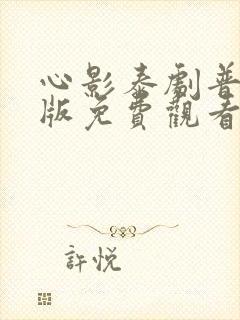 心影泰劇普
版免費觀看
許悅